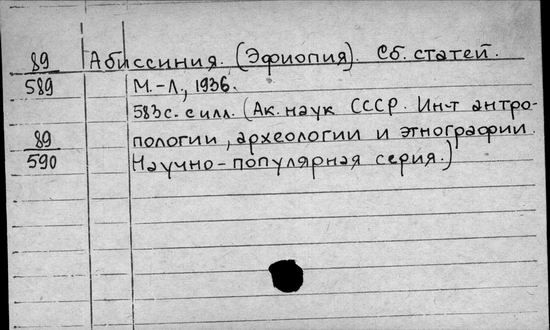 89 Абиссиния. (Эфиопия). Сб. статей.
589 М.-Л., 1936.
583 с. с илл. (Ак. наук СССР. Ин-т антро-
89 пологии, археологии и этнографии.
590 Научно-популярная серия.)